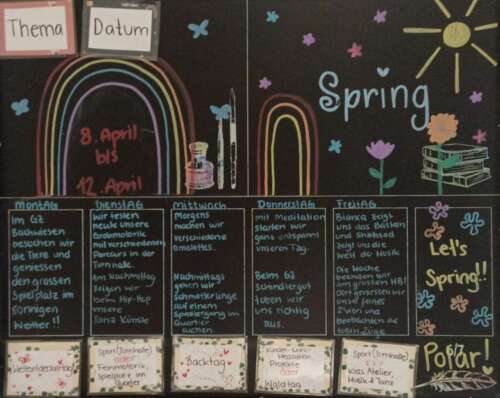 Thema
Datum
8. April
bis
12. April
Spring
MONTAG
Im GZ
Bachwiesen
besuchen wir
die Tiere und
geniessen
den grossen
Spielplatz im
sonnigen
Wetter!!
DIENSTAG
Wir testen
heute unsere
Grobmotorik
mit verschiedenen
Parcours in der
Turnhalle.
Am Nachmittag
zeigen wir
beim Hip-Hop
unsere
Tanz Künste
MITTWOCH
Morgens
machen wir
verschiedene
Omelettes.
Nachmittags
gehen wir
Schmetterlinge
auf einem
Spaziergang im
Quartier
suchen.
DONNERSTAG
Mit Meditation
starten wir
ganz entspannt
unseren Tag.
Beim GZ
Schindlergut
toben wir
uns richtig
aus.
FREITAG
Bianca zeigt
uns das Basteln
und Shahzad
zeigt uns die
Welt der Musik
Die Woche
beenden wir
am grossen HB!
Dort geniessen wir
unser feines
Zvieri und
beobachten die
tollen Züge.
Let's
Spring!!
Weltentdeckertag!
Sport (Turnhalle)
oder
Feinmotorik,
Spielplatz im
Quartier
Backtag
Kinder- und
Mediation
Projekte
oder
Waldtag
Sport (Turnhalle)
Kids Atelier,
Musik & Tanz